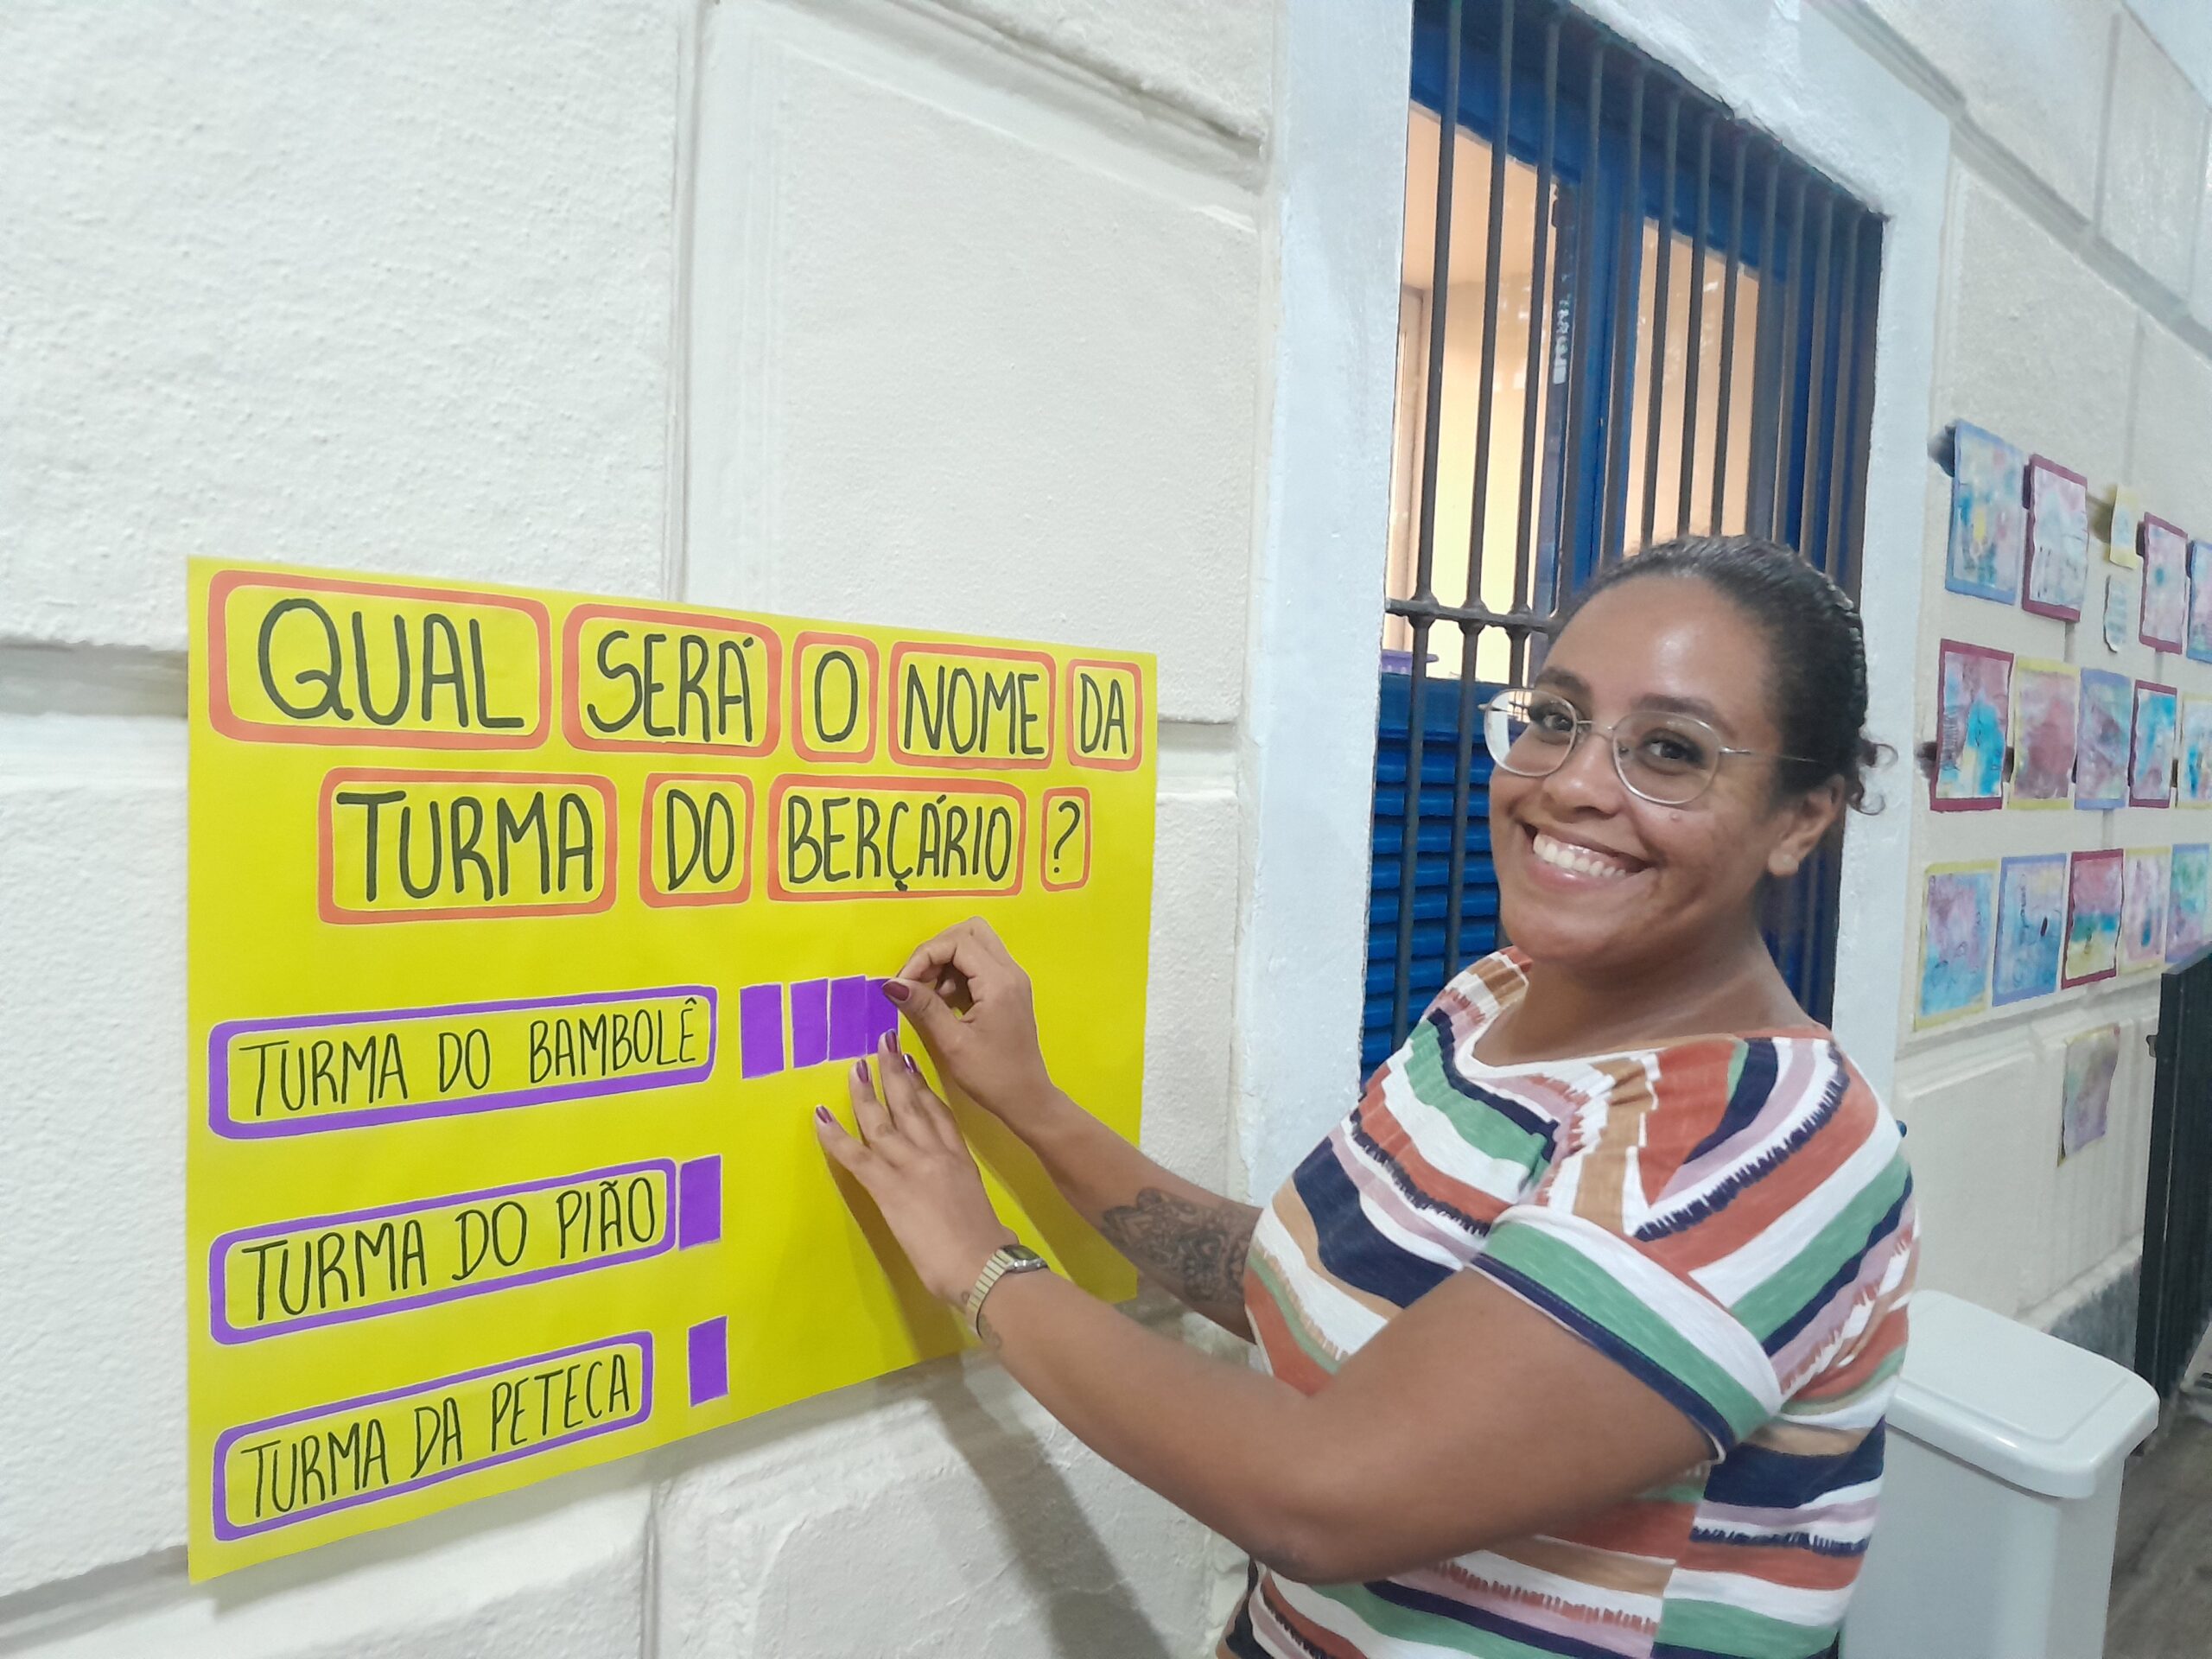 QUAL SERÁ O NOME DA
TURMA DO BERÇÁRIO ?
TURMA DO BAMBOLÊ
TURMA DO PIÃO
TURMA DA PETECA